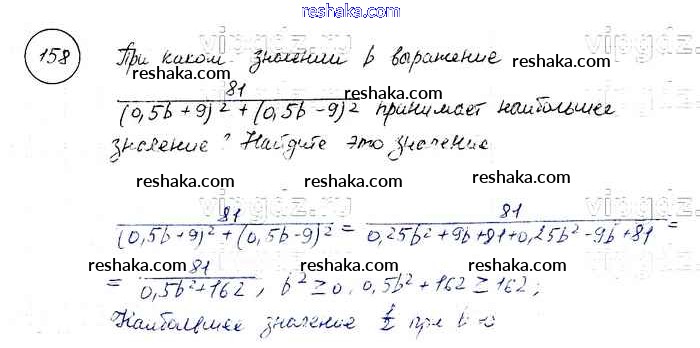 reshaka.com
158 При каком значении b выражение
reshaka.com reshaka.com
81
(0,5b+9)² + (0,5b-9)² принимает наибольшее
значение? Найдите это значение
reshaka.com reshaka.com
81 / (0,5b+9)² + (0,5b-9)² = 81 / 0,25b²+9b+81+0,25b²-9b+81 =
reshaka.com reshaka.com
= 81 / 0,5b²+162, b² ≥ 0, 0,5b²+162 ≥ 162;
Наибольшее значение 1/2 при b=0
reshaka.com
vipgdz.ru